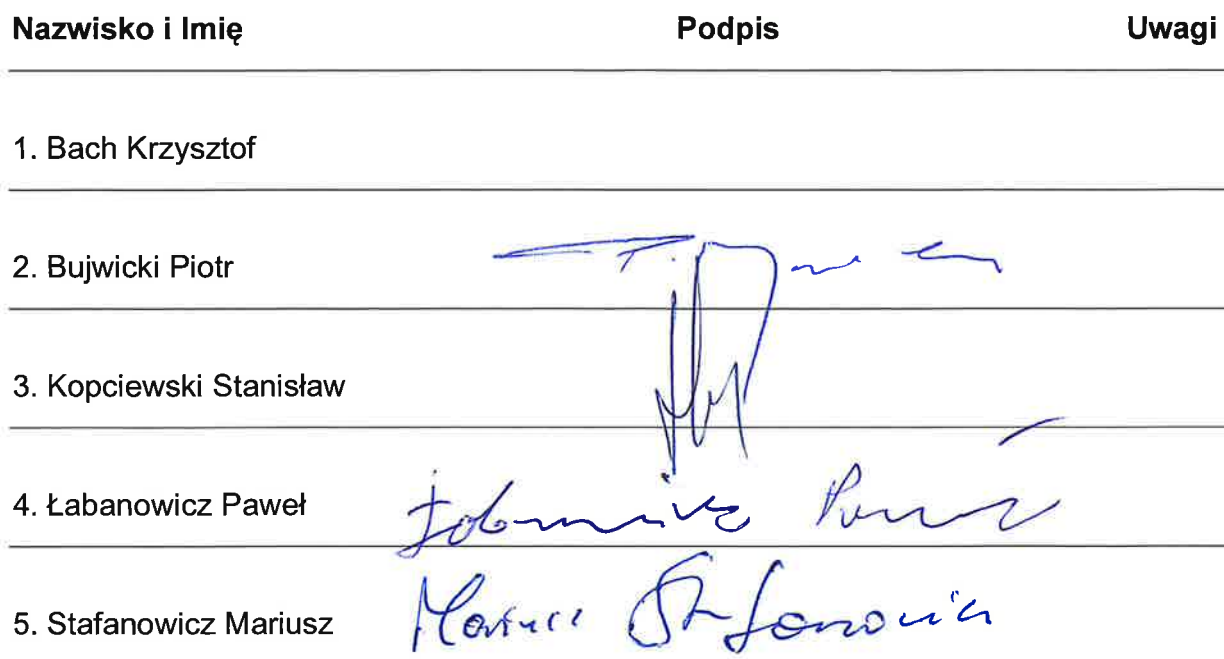 Nazwisko i Imię Podpis Uwagi
1. Bach Krzysztof
2. Bujwicki Piotr
3. Kopciewski Stanisław
4. Łabanowicz Paweł
5. Stafanowicz Mariusz Mariusz Stefanowicz